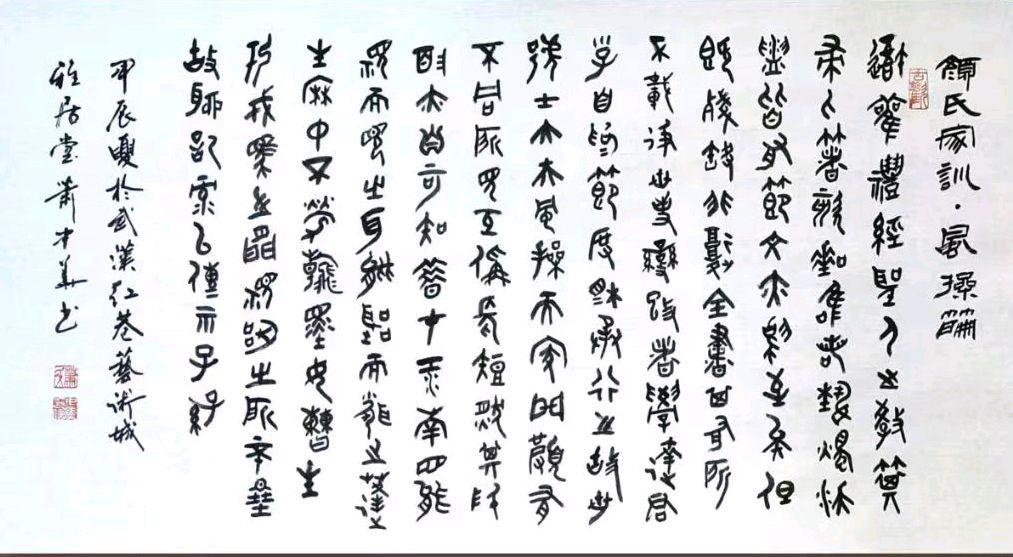 顔氏家訓·風操篇
吾觀禮經聖人之教箕
帚匕箸咳唾唯諾執燭沃
盥皆有節文亦爲至矣但
既殘缺非復全書其有所
不載及世事變改者學達君
子自爲節度相承行之故世
號士大夫風操而家門頗有
不同所見互稱長短然其阡
陌亦自可知昔在江南目能
視而見之耳能聽而聞之蓬
生麻中不勞翰墨汝曹生
於戎馬之間視聽之所不曉
故聊記錄以傳示子孫
甲辰夏於武漢红巷藝术城
雅居堂蕭才書